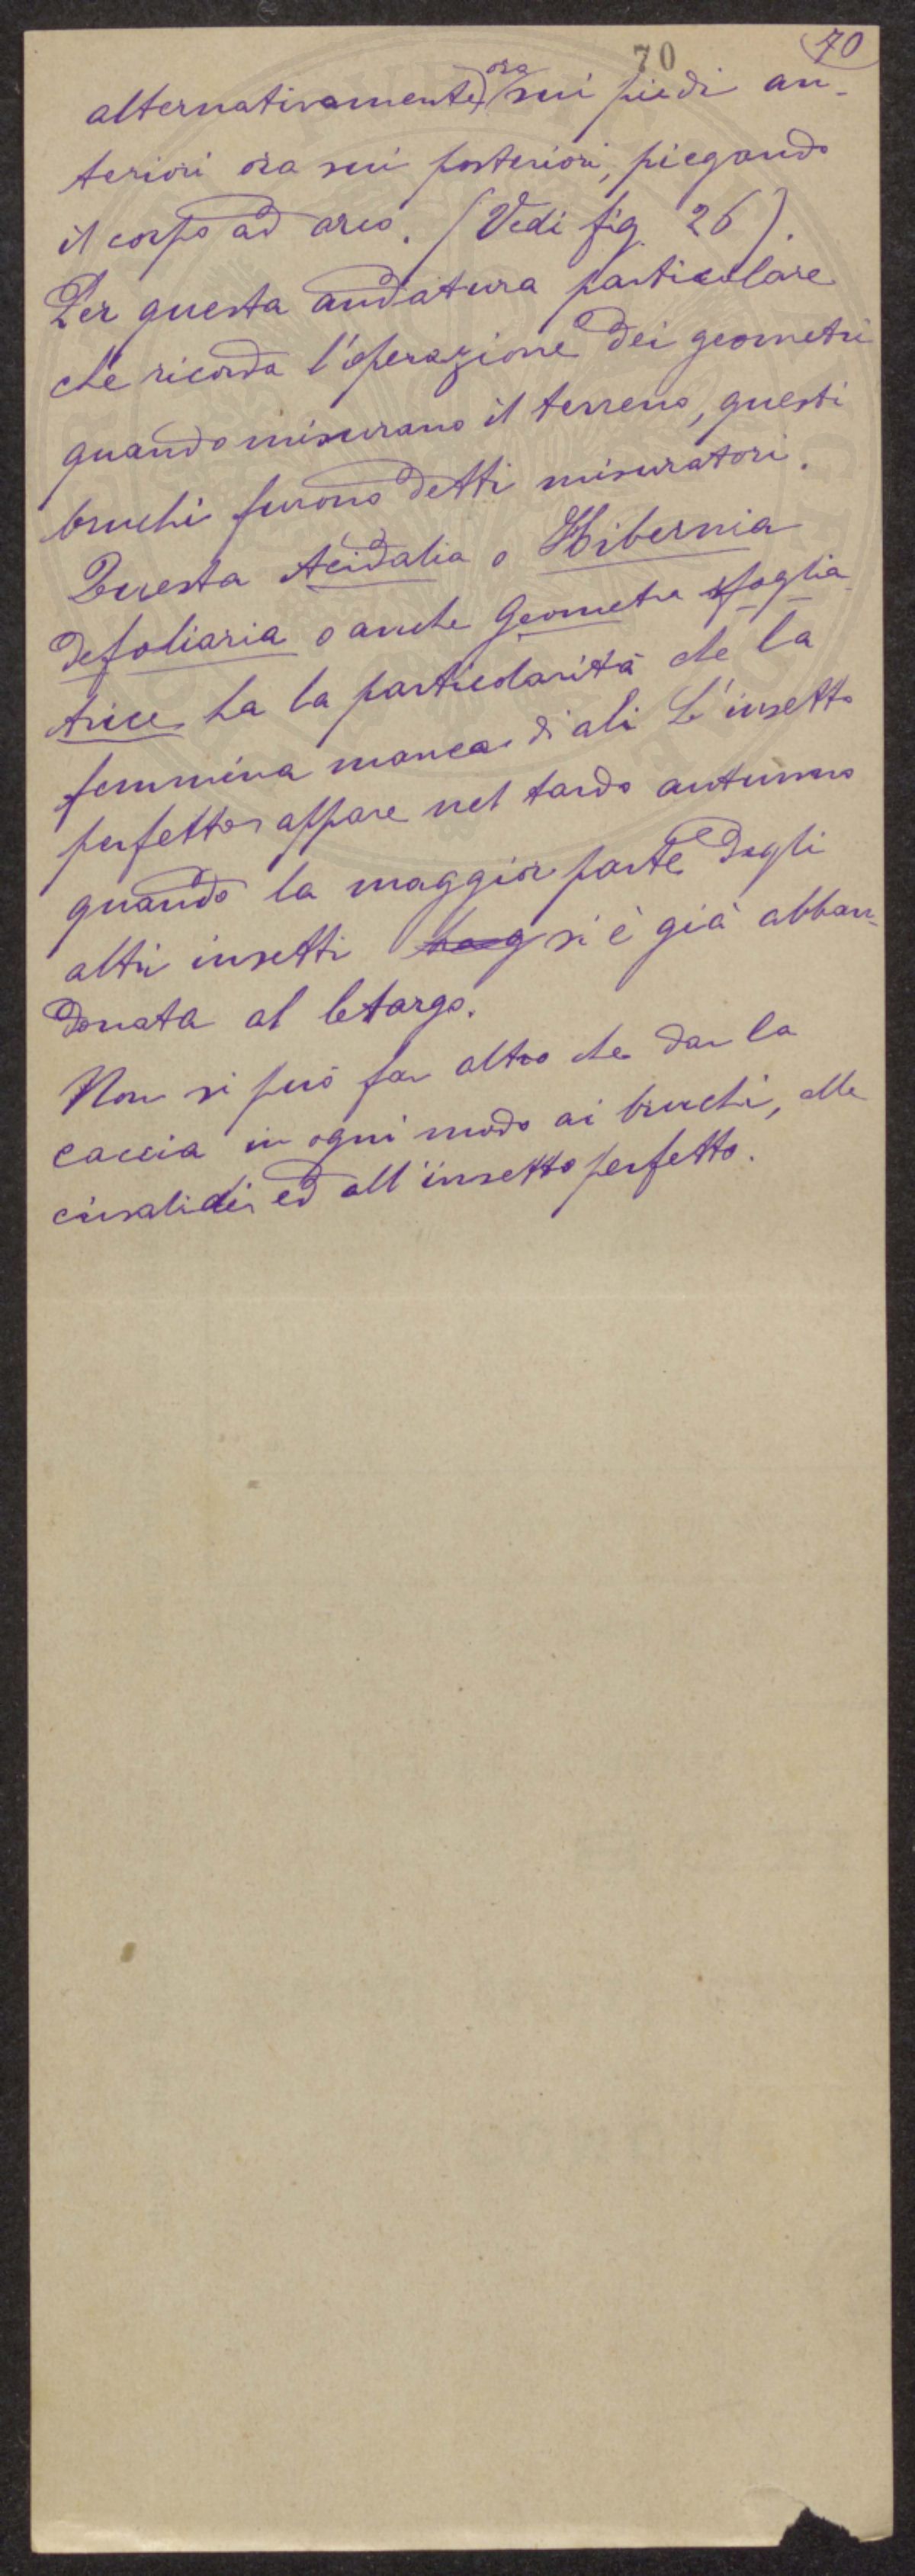 70
70
alternativamente ora sui piedi an-
teriori ora sui posteriori, piegando
il corpo ad arco. (Vedi fig. 26).
Per questa andatura particolare
che ricorda l'operazione dei geometri
quando misurano il terreno, questi
bruchi furono detti misuratori.
Questa Acidalia o Hibernia
defoliaria o anche Geometra sfoglia
trice ha la particolarità che la
femmina manca di ali L'insetto
perfetto appare nel tardo autunno
quando la maggior parte degli
altri insetti si è già abban-
donata al letargo.
Non si può far altro che dar la
caccia in ogni modo ai bruchi, alle
crisalidi ed all'insetto perfetto.